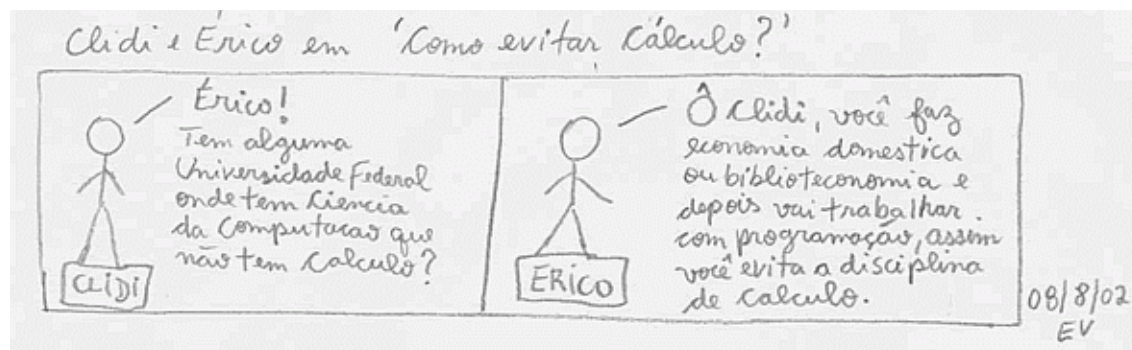 Clidi e Érico em 'Como evitar Cálculo?'
Érico!
Tem alguma
Universidade Federal
onde tem Ciencia
da Computacao que
não tem Calculo?
CLIDI
Ô Clidi, você faz
economia domestica
ou biblioteconomia e
depois vai trabalhar.
com programação, assim
você evita a disciplina
de Calculo.
ERICO
08/8/02
EV